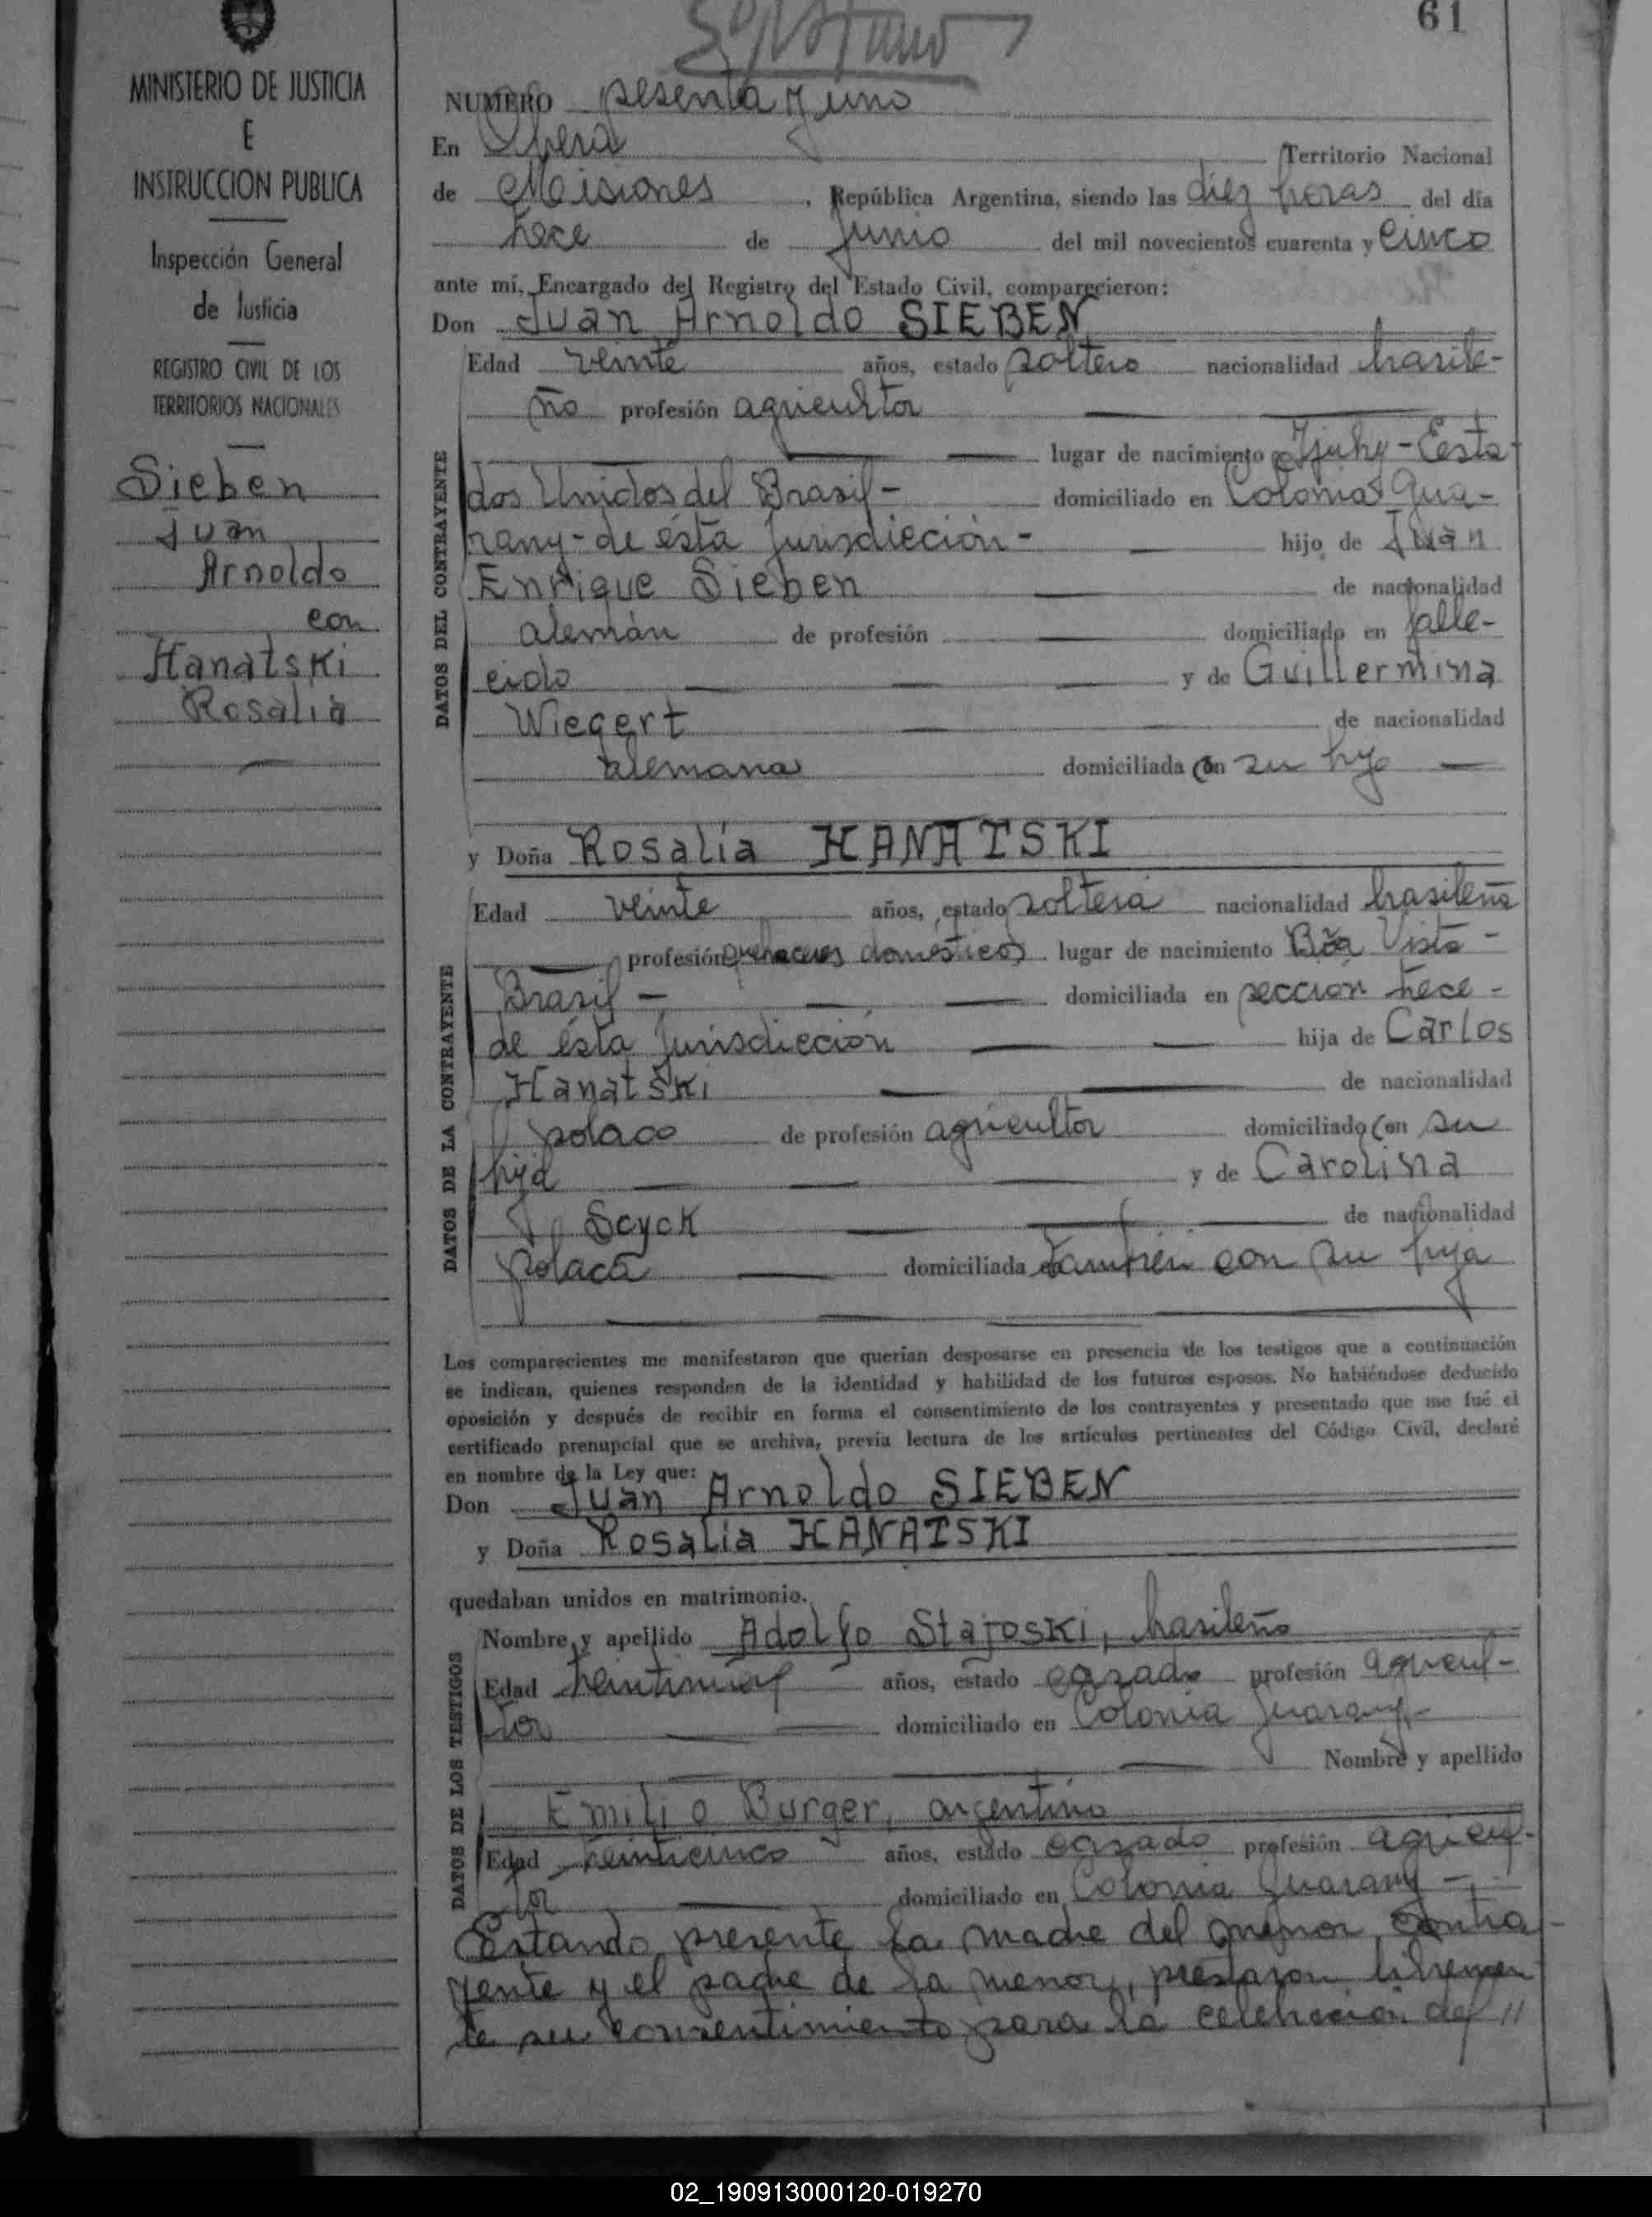 61
MINISTERIO DE JUSTICIA
E
INSTRUCCION PUBLICA
Inspección General
de Justicia
REGISTRO CIVIL DE LOS
TERRITORIOS NACIONALES
Sieben
Juan
Arnoldo
con
Hanatski
Rosalia
NUMERO sesenta y uno
En Oberá Territorio Nacional
de Misiones, República Argentina, siendo las diez horas del día
trece de junio del mil novecientos cuarenta y cinco
ante mí, Encargado del Registro del Estado Civil, comparecieron:
Don Juan Arnoldo SIEBEN
DATOS DEL CONTRAYENTE
Edad veinte años, estado soltero nacionalidad brasile-
ño profesión agricultor
lugar de nacimiento Ijuhy - Esta-
dos Unidos del Brasil - domiciliado en Colonia Gua-
rany - de ésta jurisdicción - hijo de Juan
Enrique Sieben de nacionalidad
alemán de profesión domiciliado en falle-
cido y de Guillermina
Wiegert de nacionalidad
alemana domiciliada con su hijo
y Doña Rosalía HANATSKI
DATOS DE LA CONTRAYENTE
Edad veinte años, estado soltera nacionalidad brasileña
profesión quehaceres domésticos lugar de nacimiento Bõa Vista -
Brasil - domiciliada en sección trece -
de ésta jurisdicción hija de Carlos
Hanatski de nacionalidad
polaco de profesión agricultor domiciliado con su
hija y de Carolina
Scyck de nacionalidad
polaca domiciliada también con su hija
Los comparecientes me manifestaron que querían desposarse en presencia de los testigos que a continuación
se indican, quienes responden de la identidad y habilidad de los futuros esposos. No habiéndose deducido
oposición y después de recibir en forma el consentimiento de los contrayentes y presentado que me fué el
certificado prenupcial que se archiva, previa lectura de los artículos pertinentes del Código Civil, declaré
en nombre de la Ley que:
Don Juan Arnoldo SIEBEN
y Doña Rosalia HANATSKI
quedaban unidos en matrimonio.
DATOS DE LOS TESTIGOS
Nombre y apellido Adolfo Stajoski, brasileño
Edad años, estado casado profesión agricul-
tor domiciliado en Colonia Guarany-
Nombre y apellido
Emilio Burger, argentino
Edad veinticinco años, estado casado profesión agricul-
tor domiciliado en Colonia Guarany -
Estando presente la madre del menor contra-
yente y el padre de la menor, prestaron libremen
te su consentimiento para la celebración del //
02_190913000120-019270